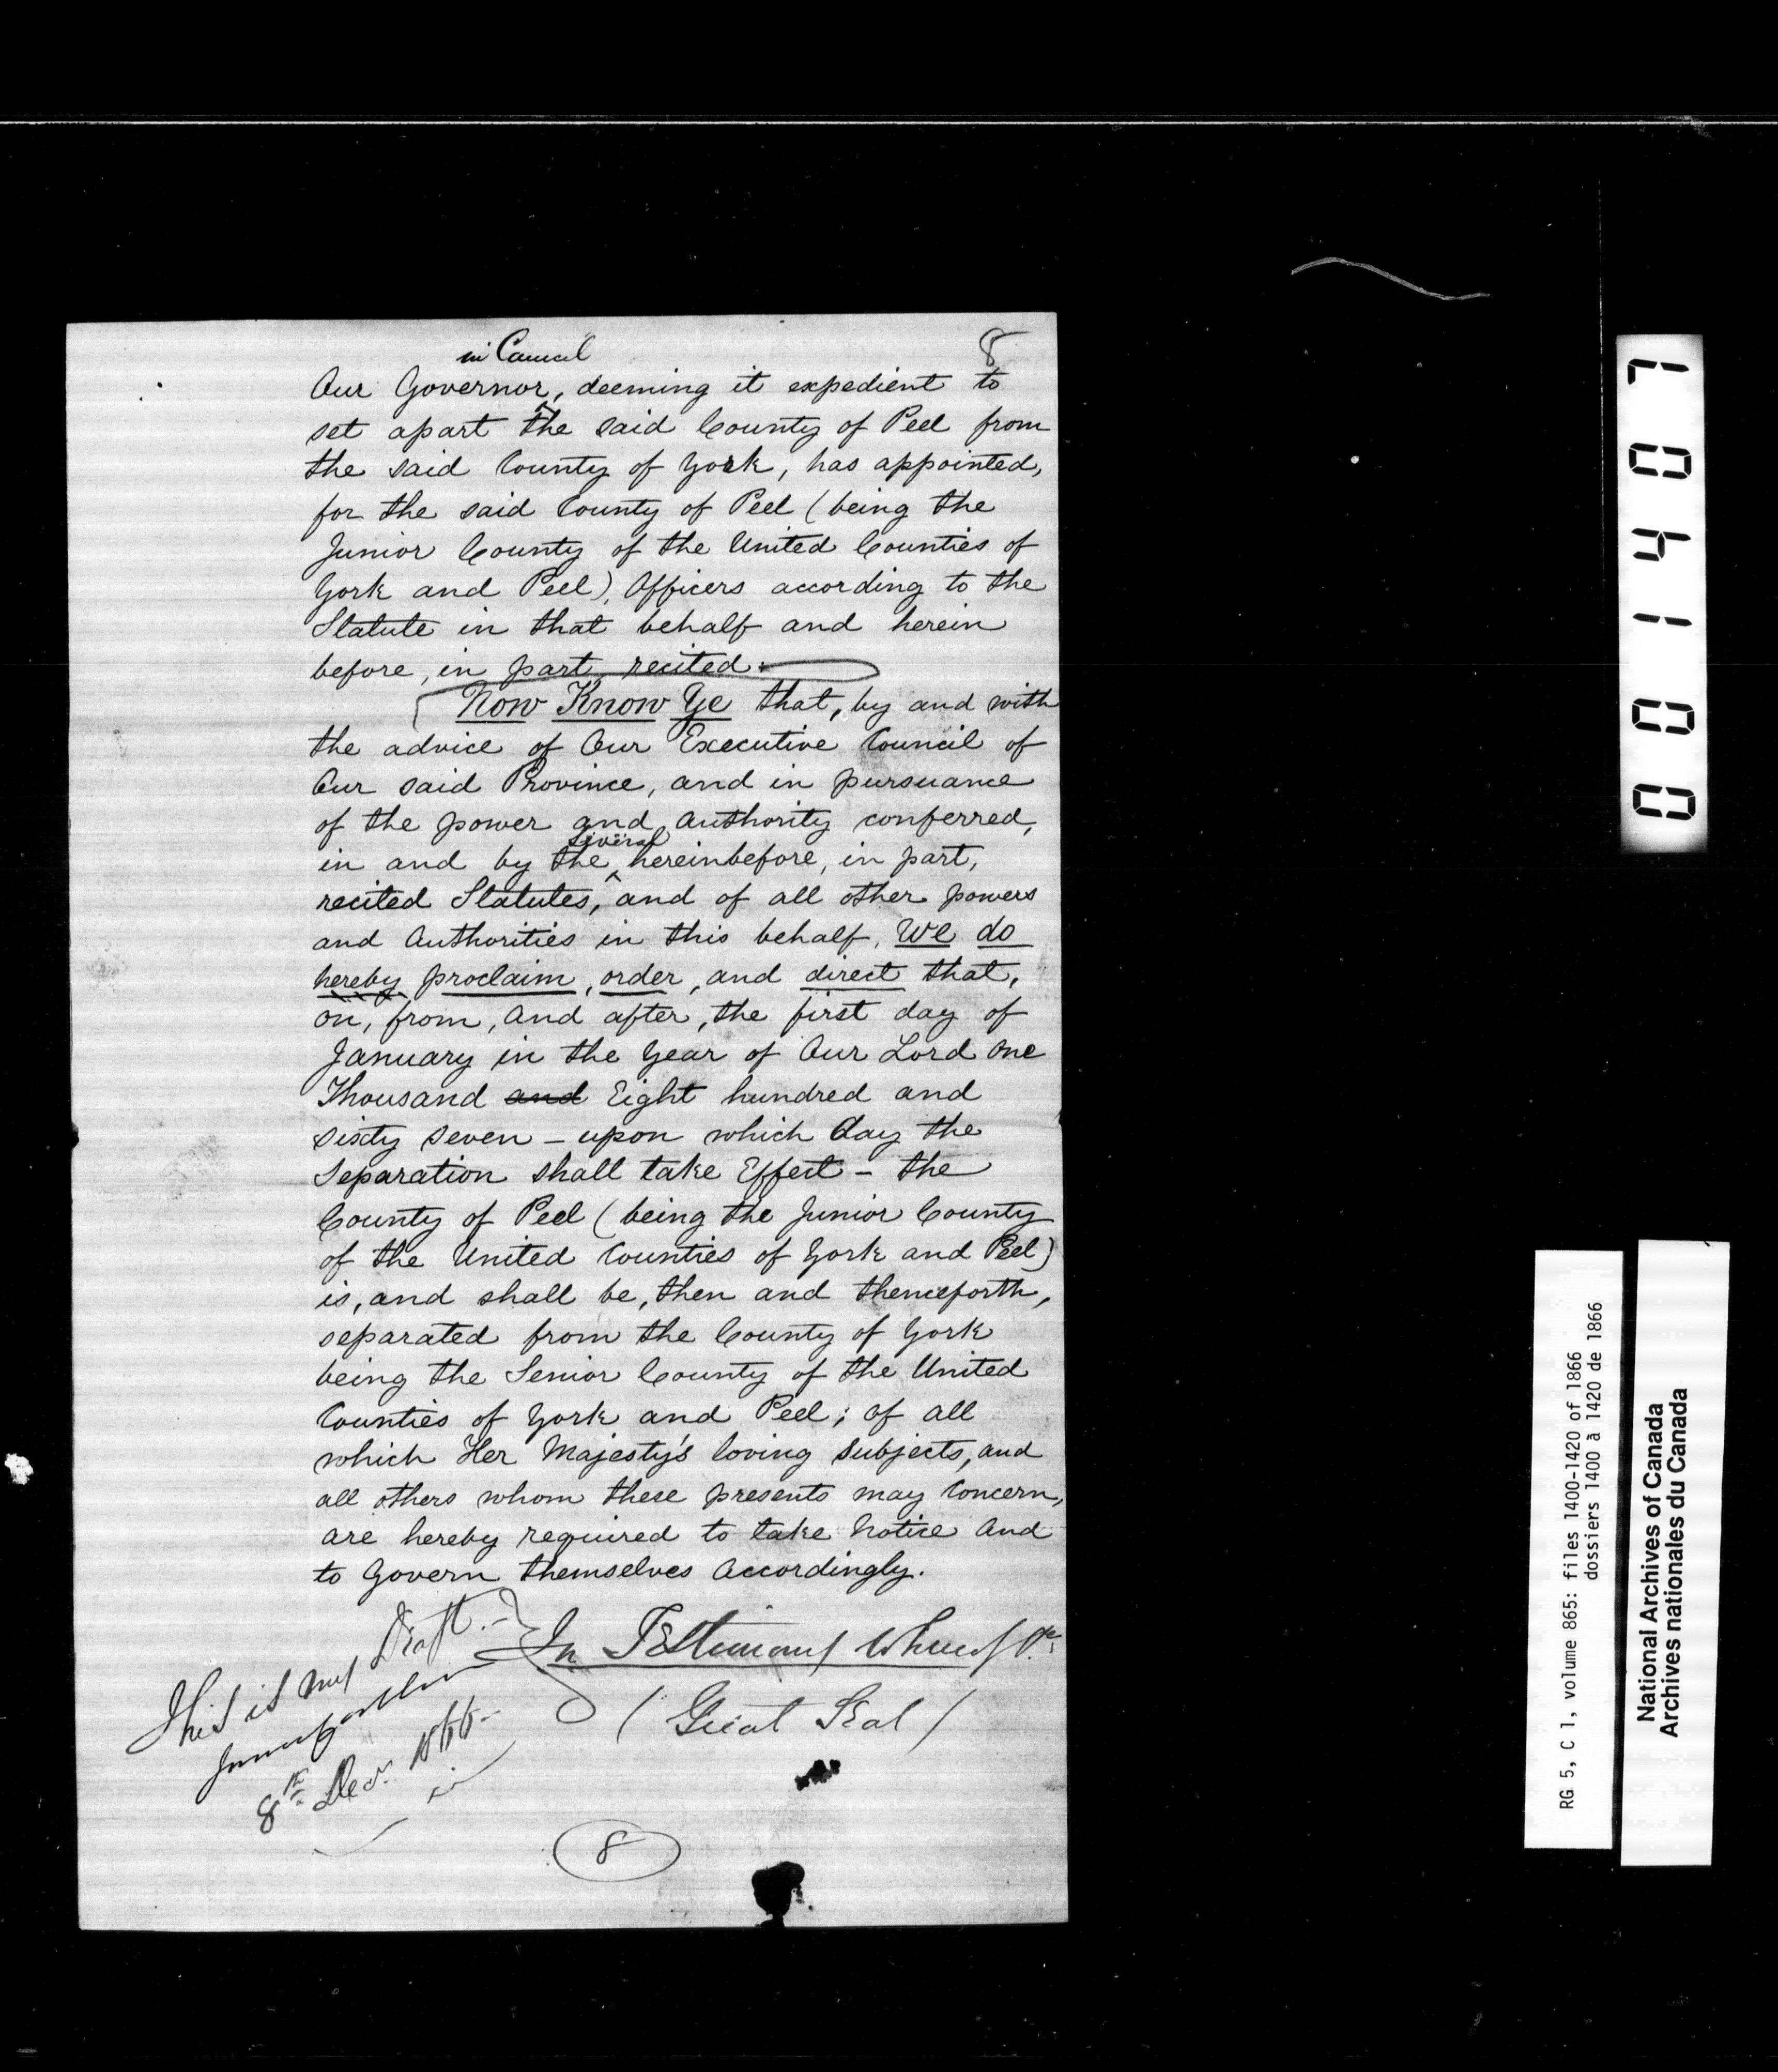 8
in Council
Our Governor, deeming it expedient to
set apart the said County of Peel from
the said County of York, has appointed,
for the said County of Peel (being the
Junior County of the United Counties of
York and Peel), Officers according to the
Statute in that behalf and herein
before, in part, recited.
Now Know Ye that, by and with
the advice of Our Executive Council of
Our said Province, and in pursuance
of the power and authority conferred,
several
in and by the hereinbefore, in part,
recited Statutes, and of all other powers
and Authorities in this behalf, We do
hereby proclaim, order, and direct that,
on, from, and after, the first day of
January in the Year of Our Lord One
Thousand and Eight hundred and
sixty seven – upon which day the
Separation shall take Effect – the
County of Peel (being the Junior County
of the United Counties of York and Peel)
is, and shall be, then and thenceforth,
separated from the County of York
being the Senior County of the United
Counties of York and Peel; of all
which Her Majesty's loving subjects, and
all others whom these presents may Concern,
are hereby required to take Notice and
to Govern themselves Accordingly.
In Testimony Whereof &c
(Great Seal)
This is my Draft.
8th Decr. 1866
8
0 0 1 4 0 7
RG 5, C 1, volume 865: files 1400-1420 of 1866
dossiers 1400 à 1420 de 1866
National Archives of Canada
Archives nationales du Canada